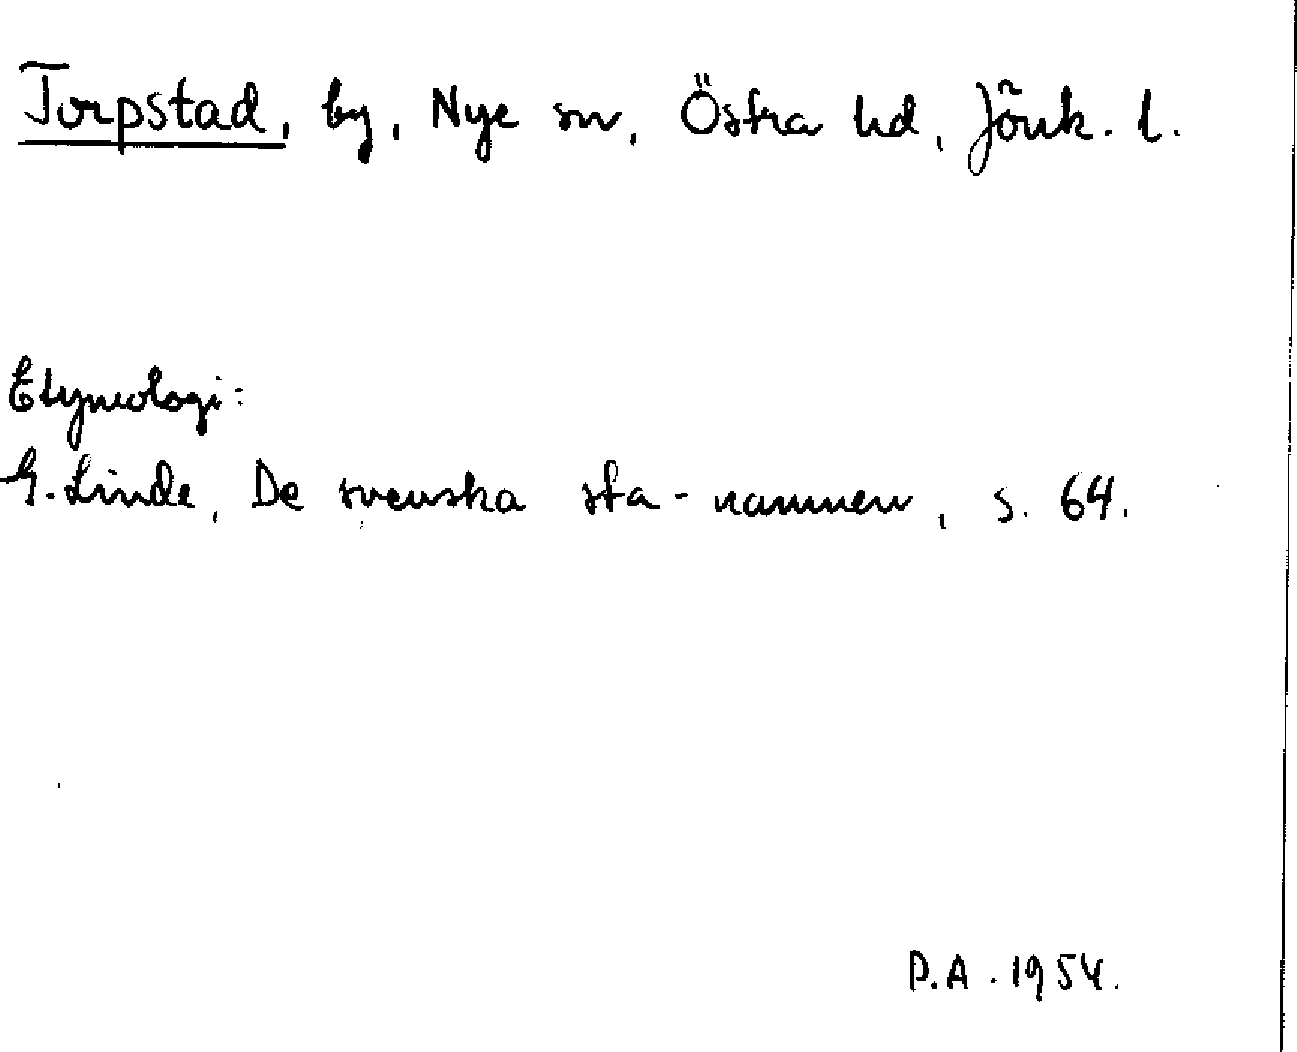 Torpstad, by, Nye sn, Östra hd, Jönk. l.
Etymologi:
G. Linde, De svenska sta-namnen, s. 64.
P.A. 1954.